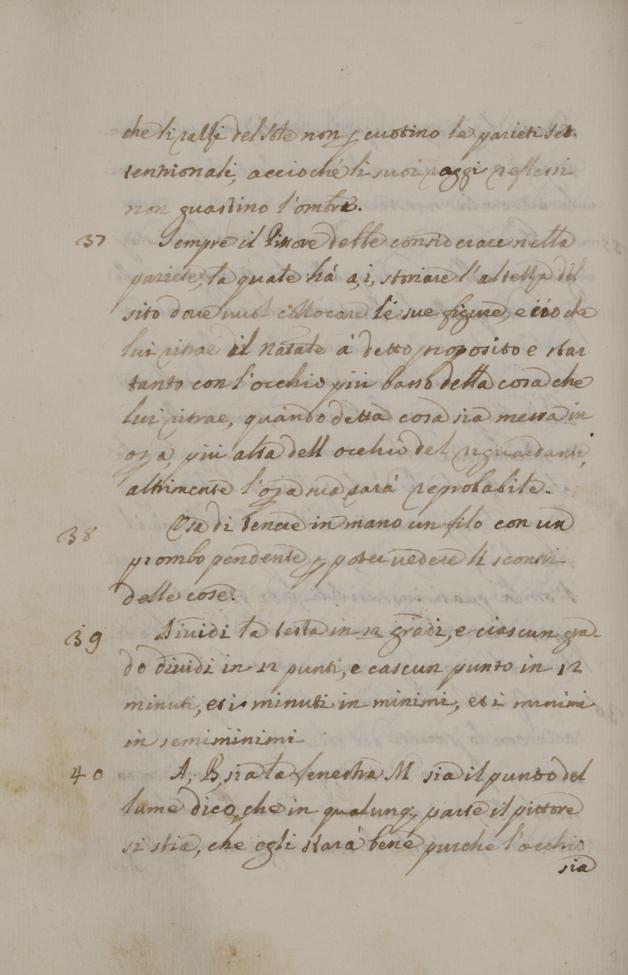 che li raggi del sole non p cuotino le parieti set
tentrionali, accioché li suoi raggi reflessi
non guastino l'ombre.
37 Sempre il Pittore deue considerare nella
pariete, la quale há a, i, storiare l'altezza del
sito doue uuol collocare le sue figure, e ció che
lui ritrae il natale á detto proposito e star
tanto con l'occhio piú basso della cosa che
lui ritrae, quando detta cosa sia messa in
opa, piú alta dell occhio del riguardante,
altrimente l'opa ma sará reprobabile.
38 Usa di tenere in mano un filo con un
piombo pendente p poter uedere li scontri
delle cose.
39 Diuidi la testa in 12 gradi, e ciascun gra-
do diuidi in 12 punti, e cascun punto in 12
minuti, et i minuti in minimi, et i minimi
in semiminimi
40 A, B, sia la fenestra M sia il punto del
lume dico, che in qualunq; parte il pittore
si stia, che egli stará bene purche l'occhio
sia